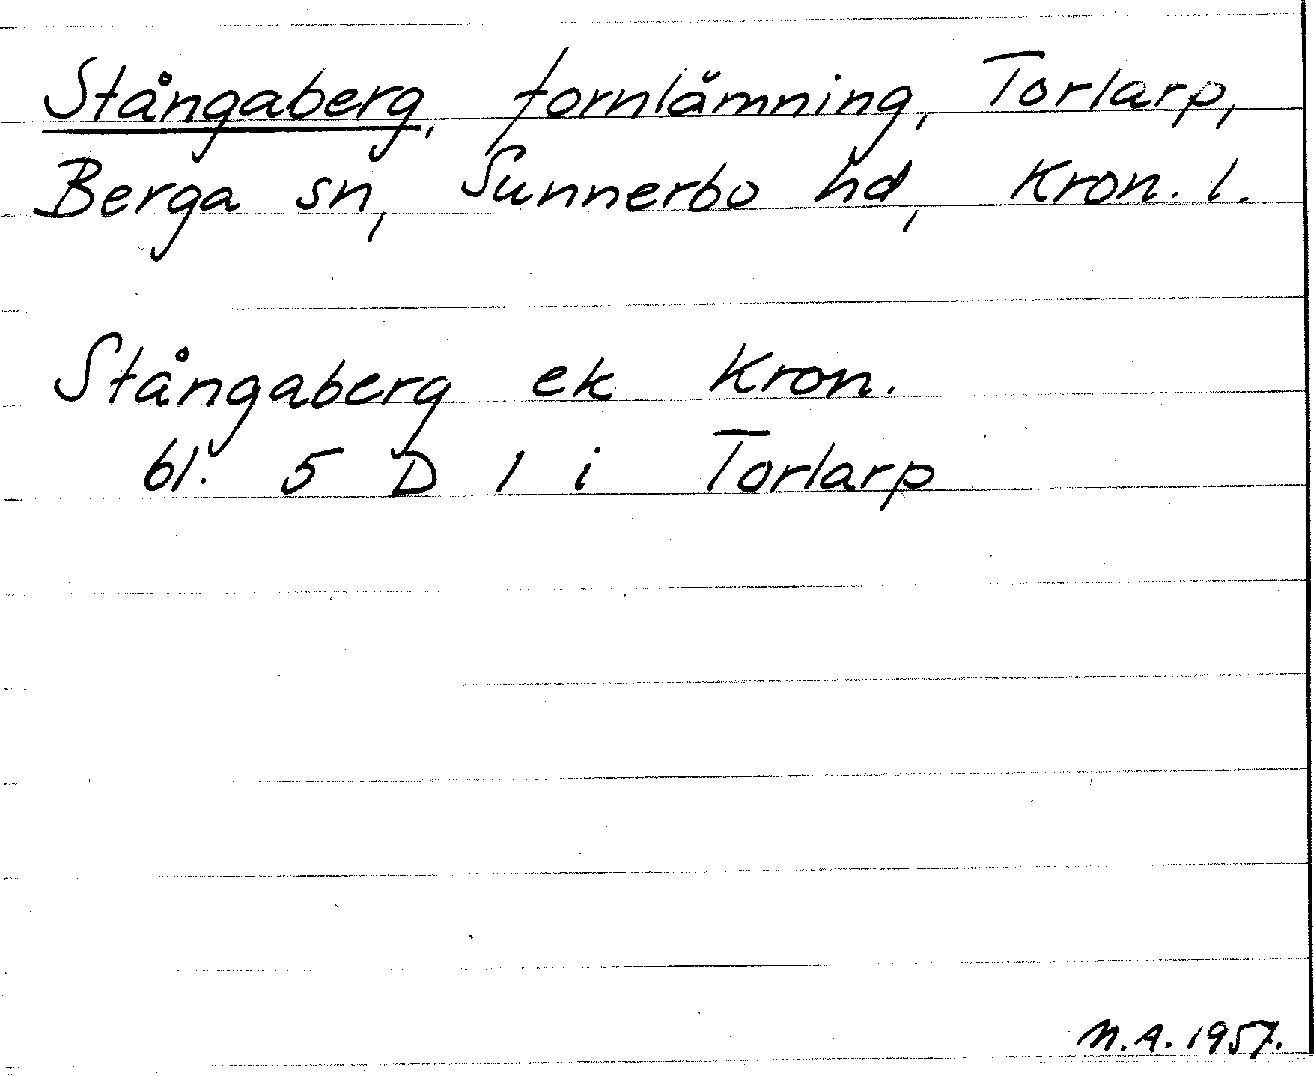 Stångaberg, fornlämning, Torlarp,
Berga sn, Sunnerbo hd, Kron. l.
Stångaberg ek Kron.
bl. 5 D 1 i Torlarp
N.A. 1957.